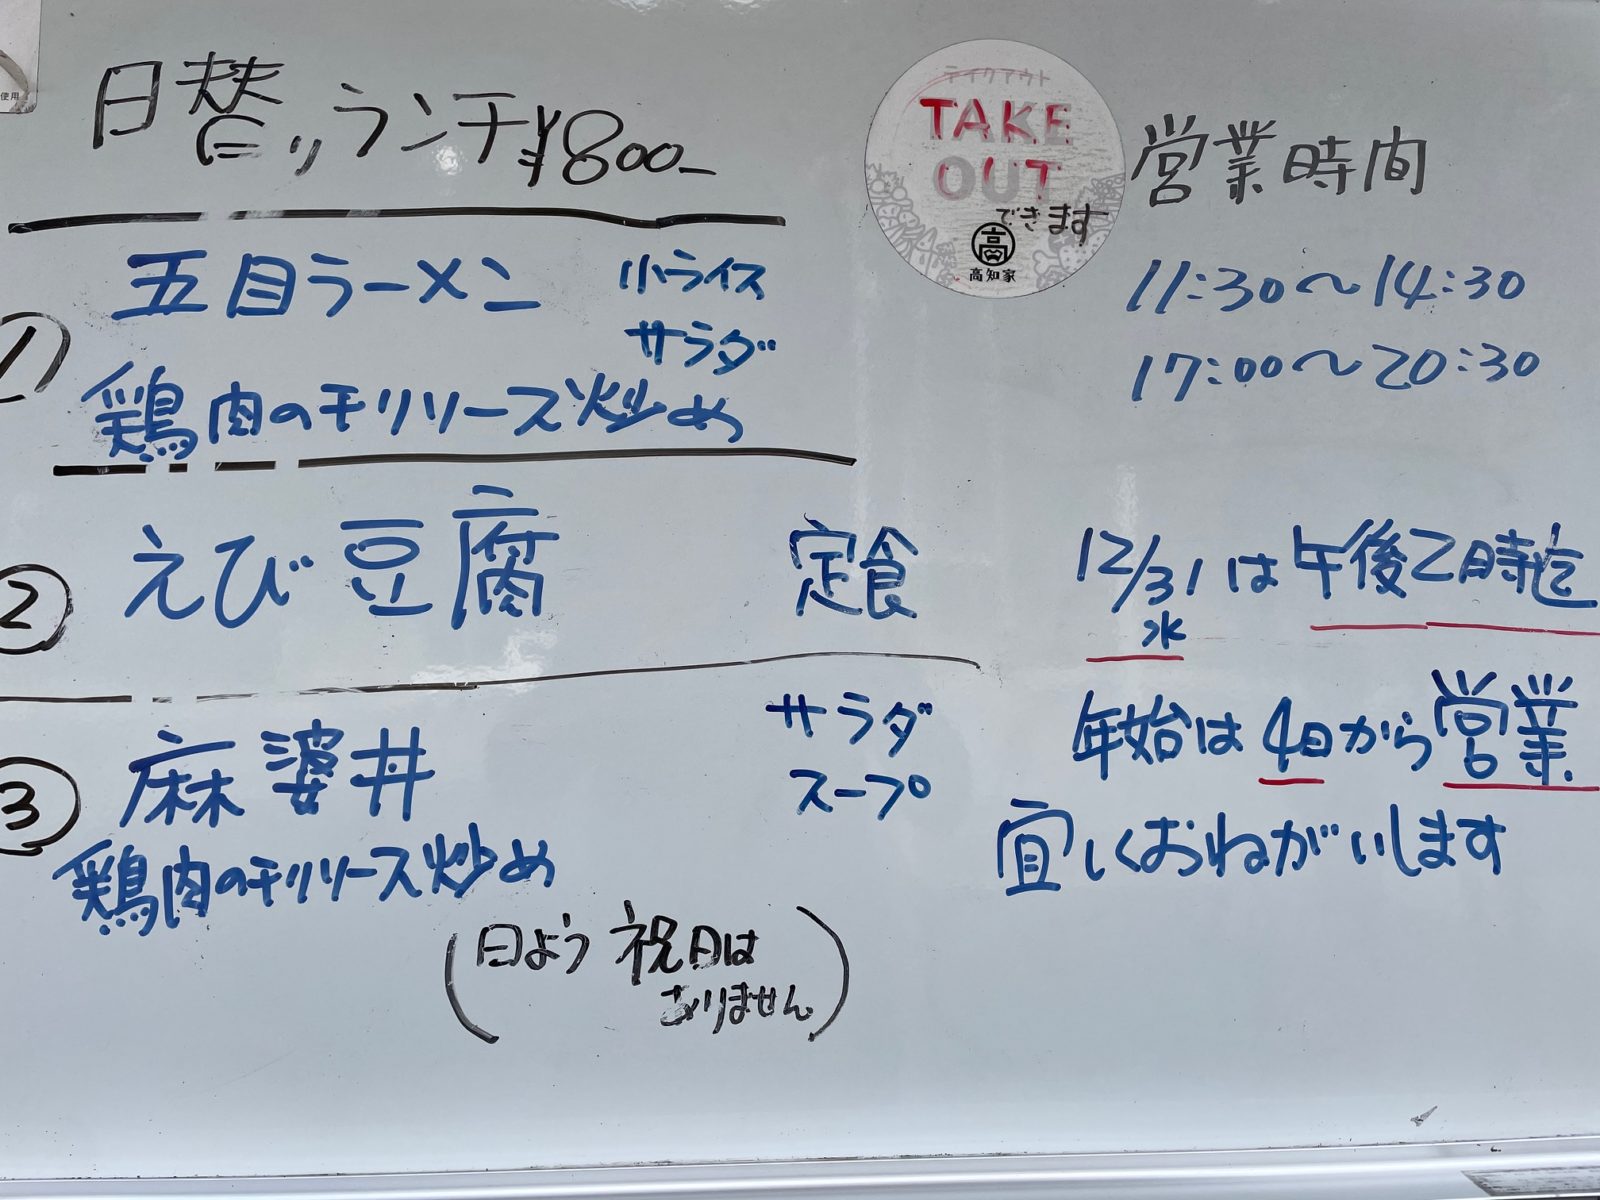 使用
日替りランチ¥800-
① 五目ラーメン 小ライス
サラダ
鶏肉のチリソース炒め
② えび豆腐 定食
③ 麻婆丼 サラダ
スープ
鶏肉のチリソース炒め
(日よう 祝日は
ありません)
テイクアウト
TAKE
OUT
できます
高
高知家
営業時間
11:30〜14:30
17:00〜20:30
12/31は午後2時迄
水
年始は4日から営業
宜しくおねがいします